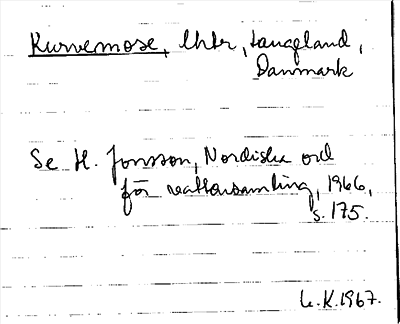 Kurvemose, Uhtr, Langeland,
Danmark
Se H. Jonsson, Nordiska ord
för vattensamling, 1966,
s. 175.
K. 1967.